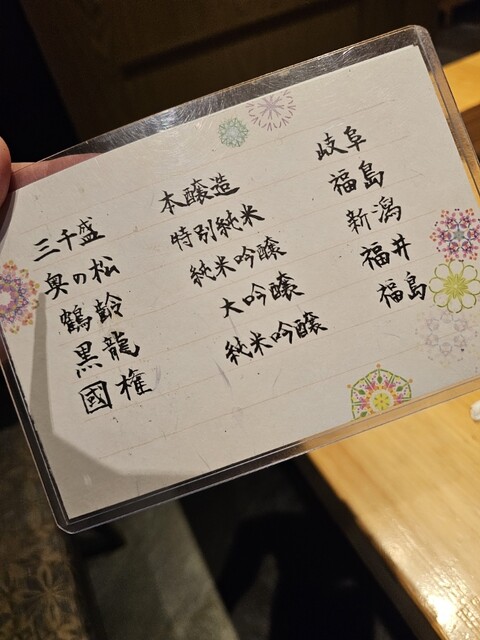 三千盛 本醸造 岐阜
奥の松 特別純米 福島
鶴齢 純米吟醸 新潟
黒龍 大吟醸 福井
國権 純米吟醸 福島